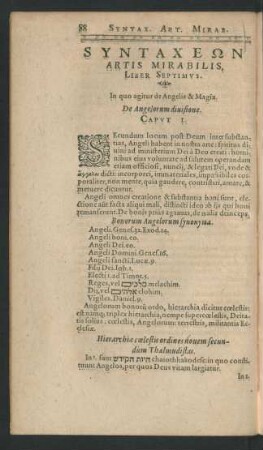 88 SYNTAX. ART. MIRAB.
SYNTAXEΩN
ARTIS MIRABILIS,
LIBER SEPTIMVS.
In quo agitur de Angelis & Magia.
De Angelorum diuisione.
CAPVT I.
SEcundum locum post Deum inter substan-
tias, Angeli habent in nostra arte: spiritus di-
uini ad ministerium Dei à Deo creati: homi-
nibus eius voluntate ad salutem operandam
etiam officiosi, nuncij, & legati Dei, vnde &
ἄγγελοι dicti: incorporei, immateriales, inuisibiles cor-
poraliter, non mente, quia gaudere, contristari, amare, &
metuere dicantur.
Angeli omnes creatione & substantia boni sunt, ele-
ctione alij facti alij mali, distincti ideo quòd qui boni
permanserunt. De bonis prius agamus, de malis deinceps.
Bonorum Angelorum synonyma.
Angeli. Genes. 32. Exod. 14.
Angeli boni, eo.
Angeli Dei. eo.
Angeli Domini. Genes. 16.
Angeli sancti. Luc. 9.
Filij Dei. Iob. 1.
Electi. 1. ad Timot. 5.
Reges, vel מלכים melachim.
Dij, vel אלהים elohim.
Vigiles. Daniel. 4.
Angelorum bonorum ordo, hierarchia dicitur cœlestis:
est namq; triplex hierarchia, nempe supercœlestis, Deita-
tis solius: cœlestis, Angelorum: terrestris, militantis Ec-
clesiæ.
Hierarchiæ cœlestis ordines nouem secun-
dùm Thalmudistas.
In 1. sunt חיות הקודש chaiothhakodesc: in quo condi-
tionum Angelos, per quos Deus vitam largiatur.
In 2.